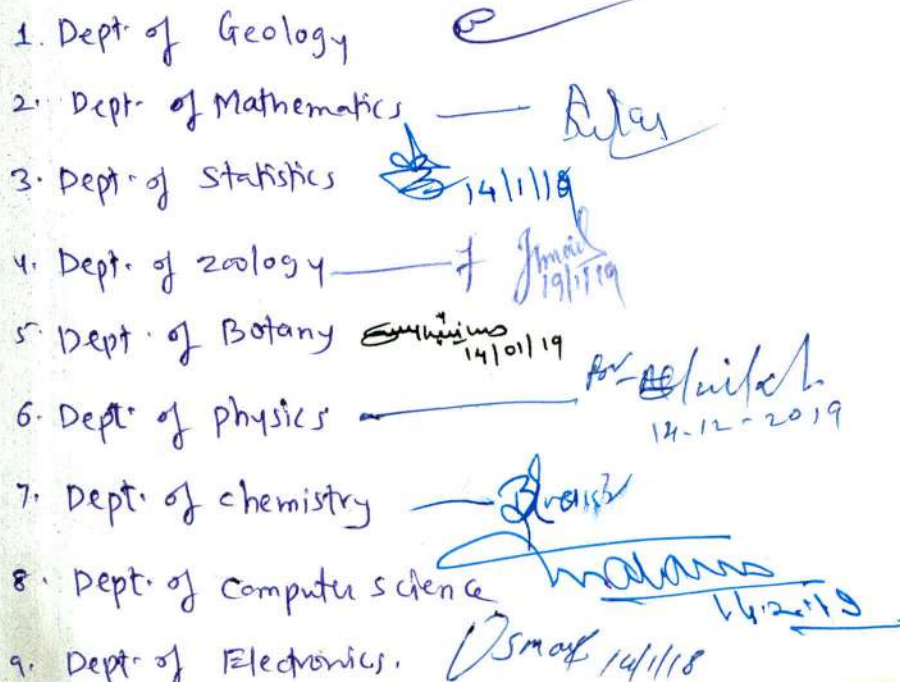 1. Dept. of Geology
2. Dept. of Mathematics
3. Dept. of Statistics 14/1/19
4. Dept. of zoology 19/1/19
5. Dept. of Botany 14/01/19
6. Dept. of physics For 14-12-2019
7. Dept. of chemistry
8. Dept. of computer science 14.2.19
9. Dept. of Electronics. 14/1/18